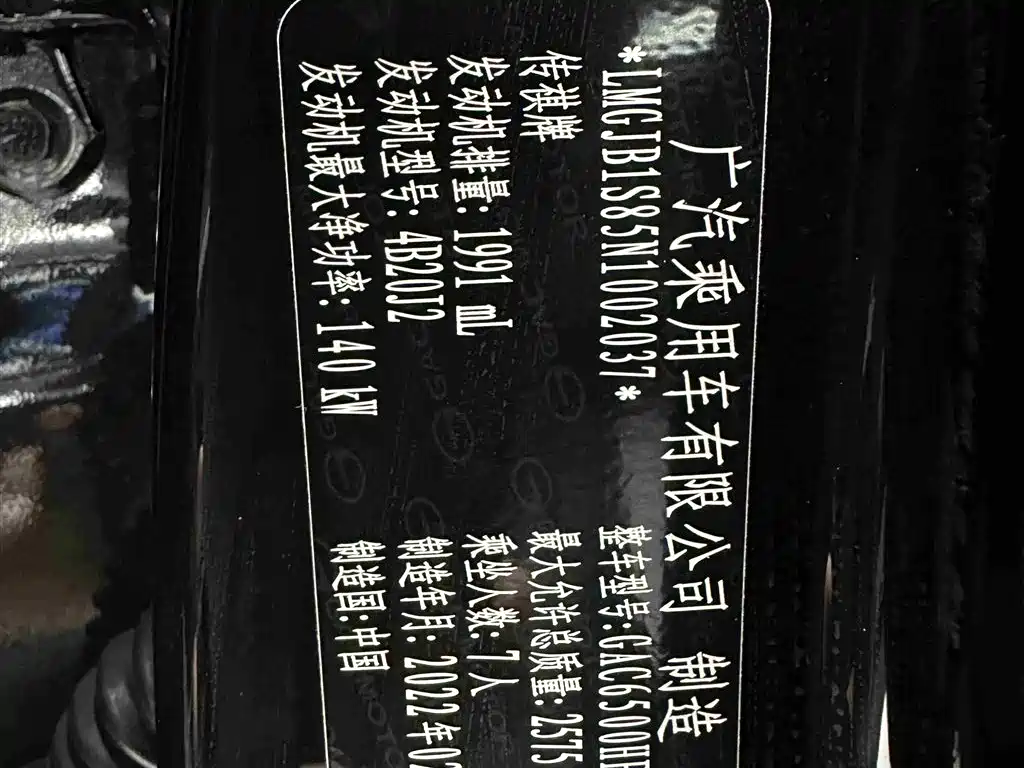 广汽乘用车有限公司 制造
*LMGJB1S85N1002037*
整车型号:GAC6500H
传祺牌
最大允许总质量:2575
发动机排量:1991 mL
乘坐人数:7人
发动机型号:4B20J2
制造年月:2022年0
发动机最大净功率:140 kW
制造国:中国